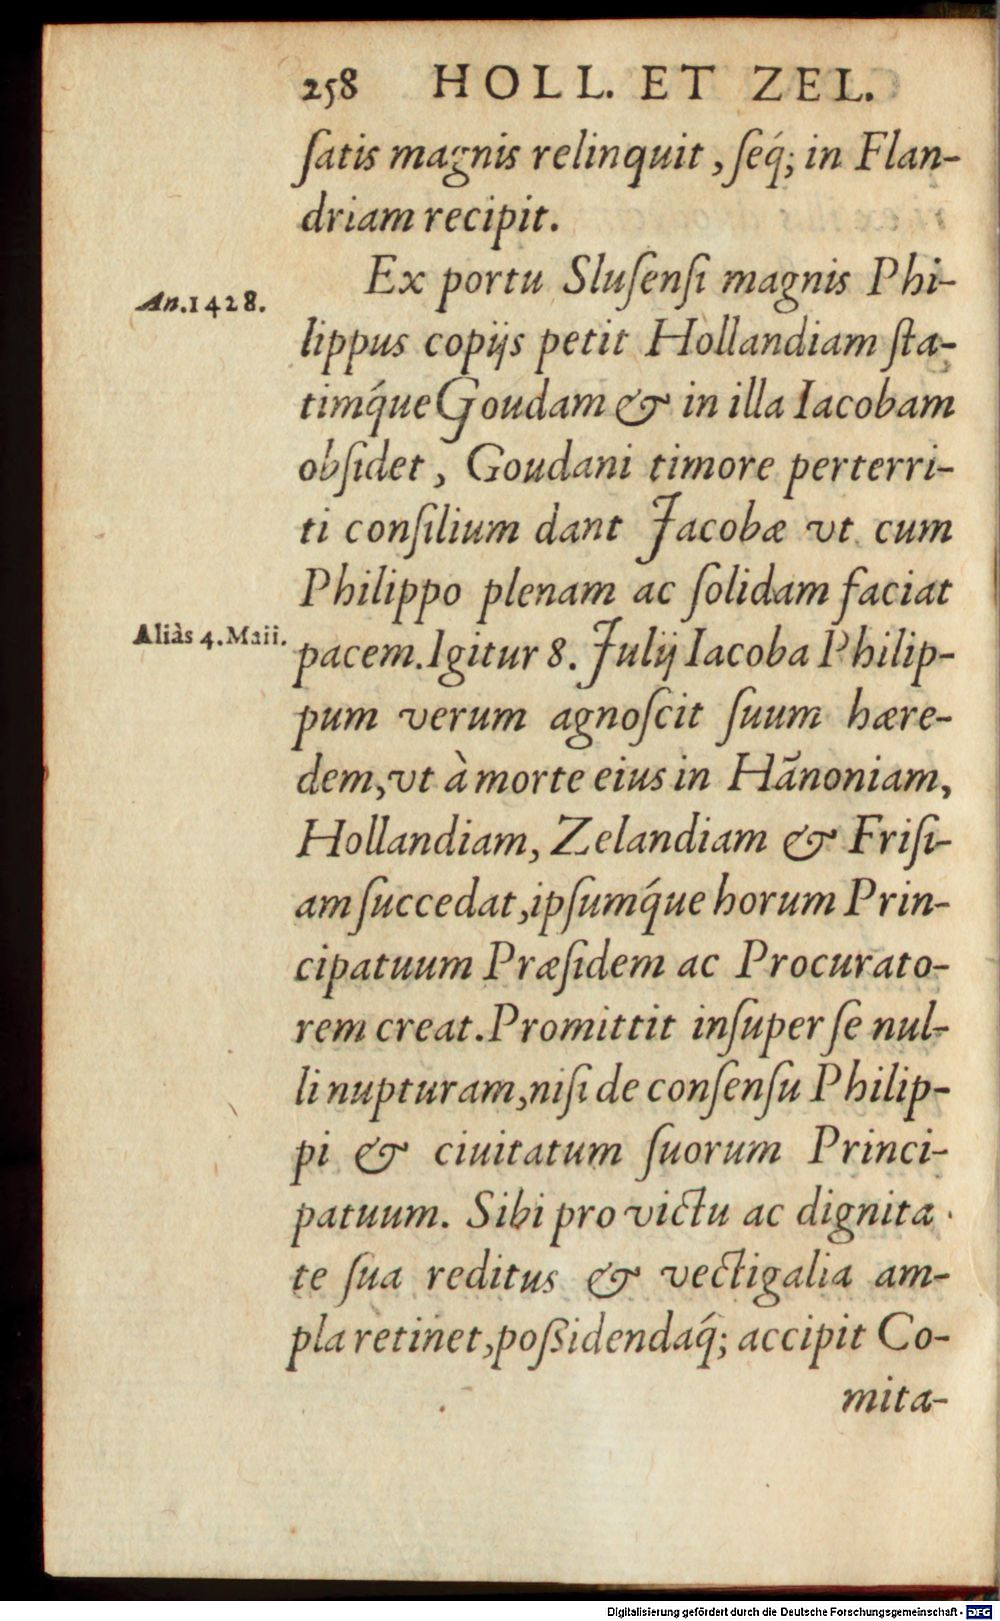 258 HOLL. ET ZEL.
ſatis magnis relinquit, ſeq́; in Flan-
driam recipit.
An. 1428.
Ex portu Sluſenſi magnis Phi-
lippus copijs petit Hollandiam ſta-
timq́ue Goudam & in illa Iacobam
obſidet, Goudani timore perterri-
ti conſilium dant Jacobæ vt cum
Philippo plenam ac ſolidam faciat
Aliàs 4. Maii.
pacem. Igitur 8. Julij Iacoba Philip-
pum verum agnoſcit ſuum hære-
dem, vt à morte eius in Hãnoniam,
Hollandiam, Zelandiam & Friſi-
am ſuccedat, ipſumq́ue horum Prin-
cipatuum Præſidem ac Procurato-
rem creat. Promittit inſuper ſe nul-
li nupturam, niſi de conſenſu Philip-
pi & ciuitatum ſuorum Princi-
patuum. Sibi pro victu ac dignita-
te ſua reditus & vectigalia am-
pla retinet, poſsidendaq́; accipit Co-
mita-
Digitalisierung gefördert durch die Deutsche Forschungsgemeinschaft - DFG